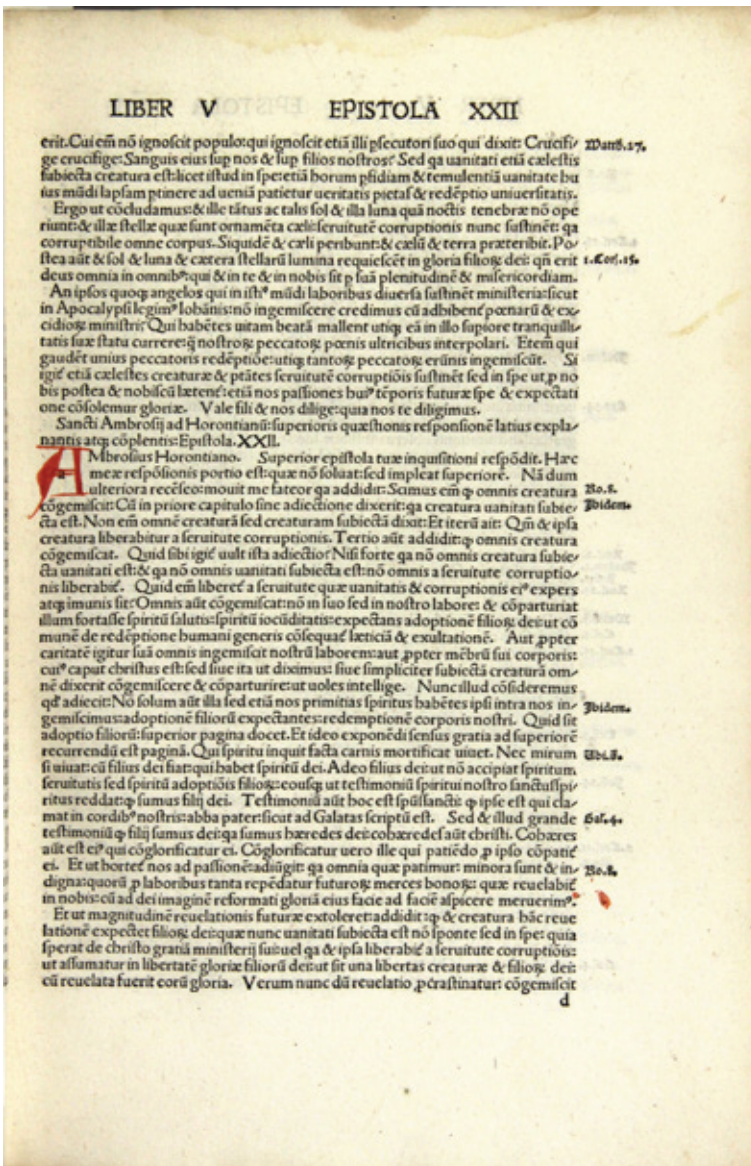 LIBER V EPISTOLA XXII
erit. Cui em̄ nō ignoscit populo: qui ignoscit etiā illi ꝑsecutori suo qui dixit: Crucifi/ Matth. 27.
ge crucifige: Sanguis eius sup nos & sup filios nostros? Sed qa uanitati etiā cælestis
subiecta creatura est: licet istud in spe: etiā horum ꝑfidiam & temulentiā uanitate hu
ius mūdi lapsam ptinere ad ueniā patietur ueritatis pietas & redēptio uniuersitatis.
Ergo ut cōcludamus: & ille tātus ac talis sol & illa luna quā noctis tenebræ nō ope
riunt: & illæ stellæ quæ sunt ornamēta cæli: seruitutē corruptionis nunc sustinēt: qa
corruptibile omne corpus. Siquidē & cæli peribunt: & cælū & terra præteribit. Po/
stea aūt & sol & luna & cætera stellarū lumina requiescēt in gloria filioꝝ dei: qñ erit 1. Cor. 15.
deus omnia in omnibꝰ: qui & in te & in nobis sit ꝑ suā plenitudinē & misericordiam.
An ipsos quoqꝫ angelos qui in istiꝰ mūdi laboribus diuersa sustinēt ministeria: sicut
in Apocalypsi legimꝰ Iohānis: nō ingemiscere credimus cū adhibent̄ pœnarū & ex/
cidioꝝ ministri? Qui habētes uitam beatā mallent utiqꝫ eā in illo supiore tranquilli/
tatis suæ statu currere: q̄ nostroꝝ peccatoꝝ pœnis ultricibus interpolari. Etem qui
gaudēt unius peccatoris redēptiōe: utiqꝫ tantoꝝ peccatoꝝ erūnis ingemiscūt. Si
igit̄ etiā cælestes creaturæ & ptātes seruitutē corruptiōis sustinēt sed in spe ut ꝓ no
bis postea & nobiscū lætent̄: etiā nos passiones huiꝰ tēporis futuræ spe & expectati
one cōsolemur gloriæ. Vale fili & nos dilige: quia nos te diligimus.
Sancti Ambrosij ad Horontianū: superioris quæstionis responsionē latius expla/
nantis atqꝫ cōplentis: Epistola. XXII.
AMbrosius Horontiano. Superior epistola tuæ inquisitioni respōdit. Hæc
meæ respōsionis portio est: quæ nō soluat: sed impleat superiorē. Nā dum
ulteriora recēseo: mouit me fateor qa addidit: Scimus em̄ ꝙ omnis creatura Ro. 8.
cōgemiscit: Cū in priore capitulo sine adiectione dixerit: qa creatura uanitati subie/ Ibidem.
cta est. Non em̄ omnē creaturā sed creaturam subiectā dixit: Et iterū ait: Qm̄ & ipsa
creatura liberabitur a seruitute corruptionis. Tertio aūt addidit: ꝙ omnis creatura
cōgemiscat. Quid sibi igit̄ uult ista adiectio? Nisi forte qa nō omnis creatura subie/
cta uanitati est: & qa nō omnis uanitati subiecta est: nō omnis a seruitute corruptio/
nis liberabit̄. Quid em̄ liberet̄ a seruitute quæ uanitatis & corruptionis eiꝰ expers
atqꝫ imunis sit? Omnis aūt cōgemiscat: nō in suo sed in nostro labore: & cōparturiat
illum fortasse spiritū salutis: spiritū iocūditatis: expectans adoptionē filioꝝ dei: ut cō
munē de redēptione humani generis cōsequat̄ læticiā & exultationē. Aut ꝓpter
caritatē igitur suā omnis ingemiscit nostrū laborem: aut ꝓpter mēbrū sui corporis:
cuiꝰ caput christus est: sed siue ita ut diximus: siue simpliciter subiectā creaturā om/
nē dixerit cōgemiscere & cōparturire: ut uoles intellige. Nunc illud cōsideremus
qd̄ adiecit: Nō solum aūt illa sed etiā nos primitias spiritus habētes ipsi intra nos in/ Ibidem.
gemiscimus: adoptionē filiorū expectantes: redemptionē corporis nostri. Quid sit
adoptio filiorū: superior pagina docet. Et ideo exponēdi sensus gratia ad superiorē
recurrendū est paginā. Qui spiritu inquit facta carnis mortificat uiuet. Nec mirum Ubi. s̄.
si uiuat: cū filius dei fiat: qui habet spiritū dei. Adeo filius dei: ut nō accipiat spiritum
seruitutis sed spiritū adoptiōis filioꝝ: eousqꝫ ut testimoniū spiritui nostro sanctus spi/
ritus reddat: ꝙ sumus filij dei. Testimoniū aūt hoc est spūssancti: ꝙ ipse est qui cla/
mat in cordibꝰ nostris: abba pater: sicut ad Galatas scriptū est. Sed & illud grande Gal. 4.
testimoniū ꝙ filij sumus dei: qa sumus hæredes dei: cohæredes aūt christi. Cohæres
aūt est eiꝰ qui cōglorificatur ei. Cōglorificatur uero ille qui patiēdo ꝓ ipso cōpatit̄
ei. Et ut hortet̄ nos ad passionē: adiūgit: qa omnia quæ patimur: minora sunt & in/ Ro. 8.
digna: quorū ꝓ laboribus tanta repēdatur futuroꝝ merces bonoꝝ: quæ reuelabit̄
in nobis: cū ad dei imaginē reformati gloriā eius facie ad faciē aspicere meruerimꝰ.
Et ut magnitudinē reuelationis futuræ extoleret: addidit: ꝙ & creatura hāc reue
lationē expectet filioꝝ dei: quæ nunc uanitati subiecta est nō sponte sed in spe: quia
sperat de christo gratiā ministerij sui: uel qa & ipsa liberabit̄ a seruitute corruptiōis:
ut assumatur in libertatē gloriæ filiorū dei: ut sit una libertas creaturæ & filioꝝ dei:
cū reuelata fuerit eorū gloria. Verum nunc dū reuelatio ꝓcrastinatur: cōgemiscit
d